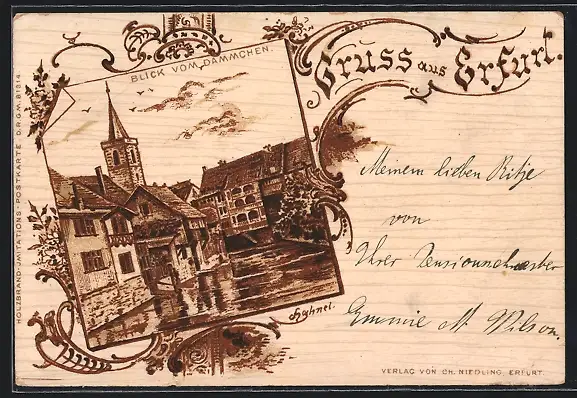 Gruss aus Erfurt.
BLICK VOM DÄMMCHEN.
HOLZBRAND-IMITATIONS-POSTKARTE D.R.G.M. 81514.
Meinem lieben
von
Ihrer
Emmie M. Wilson.
Hähnel.
VERLAG VON CH. NIEDLING, ERFURT.